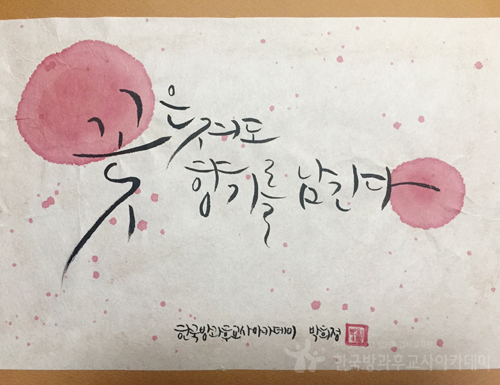 꽃은 져도
향기를 남긴다
한국방과후교사아카데미 박희정
한국방과후교사아카데미